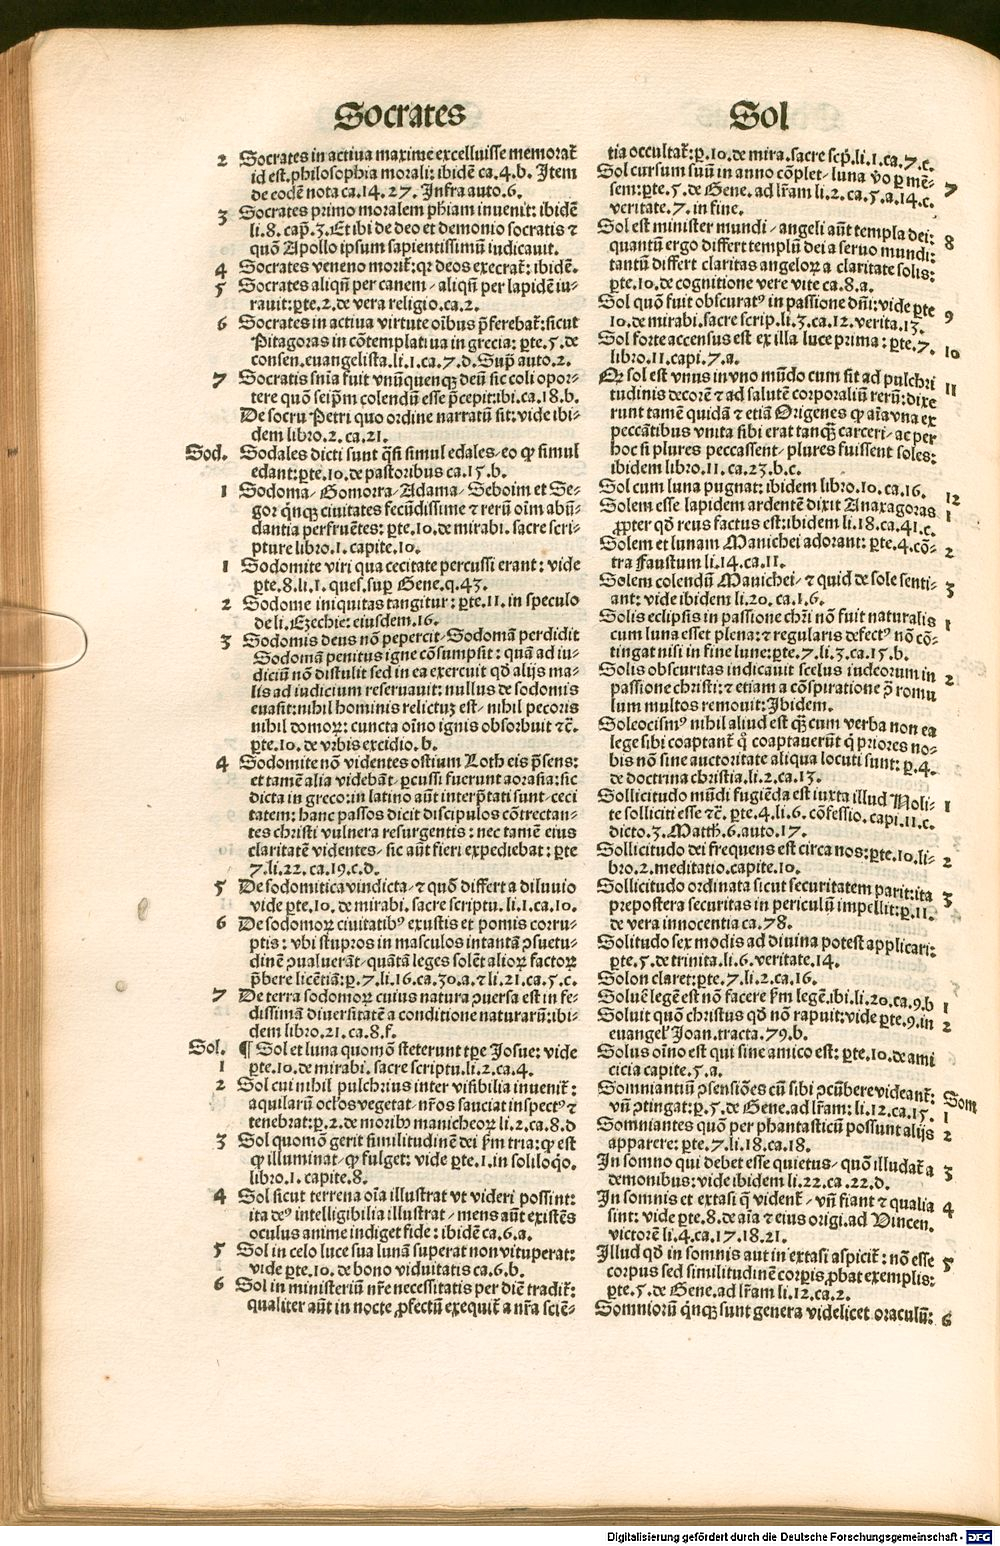 Socrates
2 Socrates in actiua maxime excelluisse memorat᷑
id est.philosophia morali: ibidē ca.4.b. Item
de eodē nota ca.14.27. Infra auto.6.
3 Socrates primo moralem ph̄iam inuenit: ibidē
li.8. cap̄.3.Et ibi de deo et demonio socratis ⁊
quō Apollo ipsum sapientissimū iudicauit.
4 Socrates veneno morit᷑:qꝛ deos execrat᷑: ibidē.
5 Socrates aliqn̄ per canem/ aliqn̄ per lapidē iu⸗
rauit:ꝑte.2.de vera religio.ca.2.
6 Socrates in actiua virtute oībus p̄ferebat᷑:sicut
Pitagoras in cōtemplatiua in grecia: ꝑte.5.de
consen.euangelista.li.1.ca.7.d.Sup̄ auto.2.
7 Socratis snīa fuit vnūquenqꝫ deū sic coli opor⸗
tere quō seip̄m colendū esse p̄cepit:ibi.ca.18.b.
De socru Petri quo ordine narratū sit: vide ibi⸗
dem libro.2.ca.21.
Sod. Sodales dicti sunt q̄si simul edales/ eo ꝙ simul
edant:ꝑte.10.de pastoribus ca.15.b.
1 Sodoma/ Gomorra/ Adama/ Seboim et Se⸗
gor qnqꝫ ciuitates fecūdissime ⁊ rerū oīm abū⸗
dantia perfruētes: ꝑte.10.de mirabi.sacre scri⸗
pture libro.1.capite.10.
1 Sodomite viri qua cecitate percussi erant: vide
ꝑte.8.li.1.ques.suꝑ Gene.q.43.
2 Sodome iniquitas tangitur: ꝑte.11.in speculo
de li.Ezechie: eiusdem.16.
3 Sodomis deus nō pepercit/ Sodomā perdidit
Sodomā penitus igne cōsumpsit: quā ad iu⸗
diciū nō distulit sed in ea exercuit qd̄ alijs ma⸗
lis ad iudicium reseruauit: nullus de sodomis
euasit:nihil hominis relictuꝫ est/ nihil pecoris
nihil domoꝝ: cuncta oīno ignis obsorbuit ⁊c̄.
ꝑte.10.de vrbis excidio.b.
4 Sodomite nō videntes ostium Loth eis p̄sens:
et tamē alia videbāt/ ꝑcussi fuerunt aorasia: sic
dicta in greco:in latino aūt interp̄tati sunt/ ceci
tatem: hanc passos dicit discipulos cōtrectan⸗
tes christi vulnera resurgentis: nec tamē eius
claritatē videntes/ sic aūt fieri expediebat: ꝑte
7.li.22.ca.19.c.d.
5 De sodomitica vindicta/ ⁊ quō differt a diluuio
vide ꝑte.10.de mirabi.sacre scriptu.li.1.ca.10.
6 De sodomoꝝ ciuitatibꝰ exustis et pomis corru⸗
ptis: vbi stupros in masculos intantā ꝯsuetu⸗
dinē ꝯualuerāt/ quātā leges solēt alioꝝ factoꝝ
p̄bere licētiā:ꝑ.7.li.16.ca.30.a.⁊ li.21.ca.5.c.
7 De terra sodomoꝝ cuius natura ꝯuersa est in fe⸗
dissimā diuersitatē a conditione naturarū:ibi⸗
dem libro.21.ca.8.f.
Sol. ¶ Sol et luna quomō steterunt tp̄e Josue: vide
1 ꝑte.10.de mirabi.sacre scriptu.li.2.ca.4.
2 Sol cui nihil pulchrius inter visibilia inuenit᷑:
aquilarū oclo̓s vegetat/ nr̄os sauciat inspectꝰ ⁊
tenebrat:ꝑ.2.de moribꝰ manicheoꝝ li.2.ca.8.d
3 Sol quomō gerit similitudinē dei ẜm tria: ꝙ est
ꝙ illuminat/ ꝙ fulget: vide ꝑte.1.in soliloqo.
libro.1.capite.8.
4 Sol sicut terrena oīa illustrat vt videri possint:
ita deꝰ intelligibilia illustrat/ mens aūt existēs
oculus anime indiget fide: ibidē ca.6.a.
5 Sol in celo luce sua lunā superat non vituperat:
vide ꝑte.10.de bono viduitatis ca.6.b.
6 Sol in ministeriū nr̄e necessitatis per diē tradit᷑:
qualiter aūt in nocte ꝓfectū exequit᷑ a nr̄a sciē⸗
Sol
tia occultat᷑:ꝑ.10.de mira.sacre scp̄.li.1.ca.7.c.
Sol cursum suū in anno cōplet/ luna v̄o ꝑ mē⸗ 7
sem:ꝑte.5.de Gene. ad lr̄am li.2.ca.5.a.14.c.
veritate.7.in fine.
Sol est minister mundi/ angeli aūt templa dei: 8
quantū ergo differt templū dei a seruo mundi:
tantū differt claritas angeloꝝ a claritate solis:
ꝑte.10.de cognitione vere vite ca.8.a.
Sol quō fuit obscuratꝰ in passione dn̄i:vide ꝑte 9
10.de mirabi.sacre scrip.li.3.ca.12.verita.13.
Sol forte accensus est ex illa luce prima: ꝑte.7. 10
libro.11.capi.7.a.
Qꝛ sol est vnus in vno mūdo cum sit ad pulchri 11
tudinis decorē ⁊ ad salutē corporaliū rerū:dixe
runt tamē quidā ⁊ etiā Origenes ꝙ aīa vna ex
peccātibus vnita sibi erat tanqꝫ carceri/ ac per
hoc si plures peccassent/ plures fuissent soles:
ibidem libro.11.ca.23.b.c.
Sol cum luna pugnat: ibidem libro.10.ca.16. 12
Solem esse lapidem ardentē dixit Anaxagoras 1
ꝓpter qd̄ reus factus est:ibidem li.18.ca.41.c.
Solem et lunam Manichei adorant: ꝑte.4.cō⸗ 2
tra Faustum li.14.ca.11.
Solem colendū Manichei/ ⁊ quid de sole senti⸗ 3
ant: vide ibidem li.20.ca.1.6.
Solis eclipsis in passione chr̄i nō fuit naturalis 1
cum luna esset plena:⁊ regularis defectꝰ nō cō⸗
tingat nisi in fine lune:ꝑte.7.li.3.ca.15.b.
Solis obscuritas indicauit scelus iudeorum in 2
passione christi:⁊ etiam a cōspiratione p̄ romu
lum multos remouit:Ibidem.
Soleocismꝰ nihil aliud est qꝫ cum verba non ea
lege sibi coaptant᷑ q̊ coaptauerūt q̇ priores no⸗
bis nō sine auctoritate aliqua locuti sunt: ꝑ.4.
de doctrina christia.li.2.ca.13.
Sollicitudo mūdi fugiēda est iuxta illud Noli⸗ 1
te solliciti esse ⁊c̄. ꝑte.4.li.6.cōfessio.capi.11.c.
dicto.3.Matth.6.auto.17.
Sollicitudo dei frequens est circa nos:ꝑte.10.li⸗ 2
bro.2.meditatio.capite.10.
Sollicitudo ordinata sicut securitatem parit:ita 3
prepostera securitas in periculū impellit:ꝑ.11.
de vera innocentia ca.78.
Solitudo sex modis ad diuina potest applicari:
ꝑte.5.de trinita.li.6.veritate.14.
Solon claret:ꝑte.7.li.2.ca.16.
Soluē legē est nō facere ẜm legē.ibi.li.20.ca.9.b 1
Soluit quōn christus qd̄ nō rapuit:vide ꝑte.9.in 2
euangel̓ Joan.tracta.79.b.
Solus oīno est qui sine amico est: ꝑte.10.de ami
cicia capite.5.a.
Somniantiū ꝯsensiōes cū sibi ꝯcūbere videant᷑: Som
vn̄ ꝯtingat:ꝑ.5.de Gene.ad lr̄am: li.12.ca.15. 1
Somniantes quōn per phantasticū possunt alijs 2
apparere: ꝑte.7.li.18.ca.18.
In somno qui debet esse quietus/ quō illudat᷑ a 3
demonibus:vide ibidem li.22.ca.22.d.
In somnis et extasi q̄ vident᷑/ vn̄ fiant ⁊ qualia 4
sint: vide ꝑte.8.de aīa ⁊ eius origi.ad Vincen.
victorē li.4.ca.17.18.21.
Illud qd̄ in somnis aut in extasi aspicit᷑: nō esse 5
corpus sed similitudinē corꝑis ꝓbat exemplis:
ꝑte.5.de Gene.ad lr̄am li.12.ca.2.
Somniorū qnqꝫ sunt genera videlicet oraculū: 6
Digitalisierung gefördert durch die Deutsche Forschungsgemeinschaft - DFG